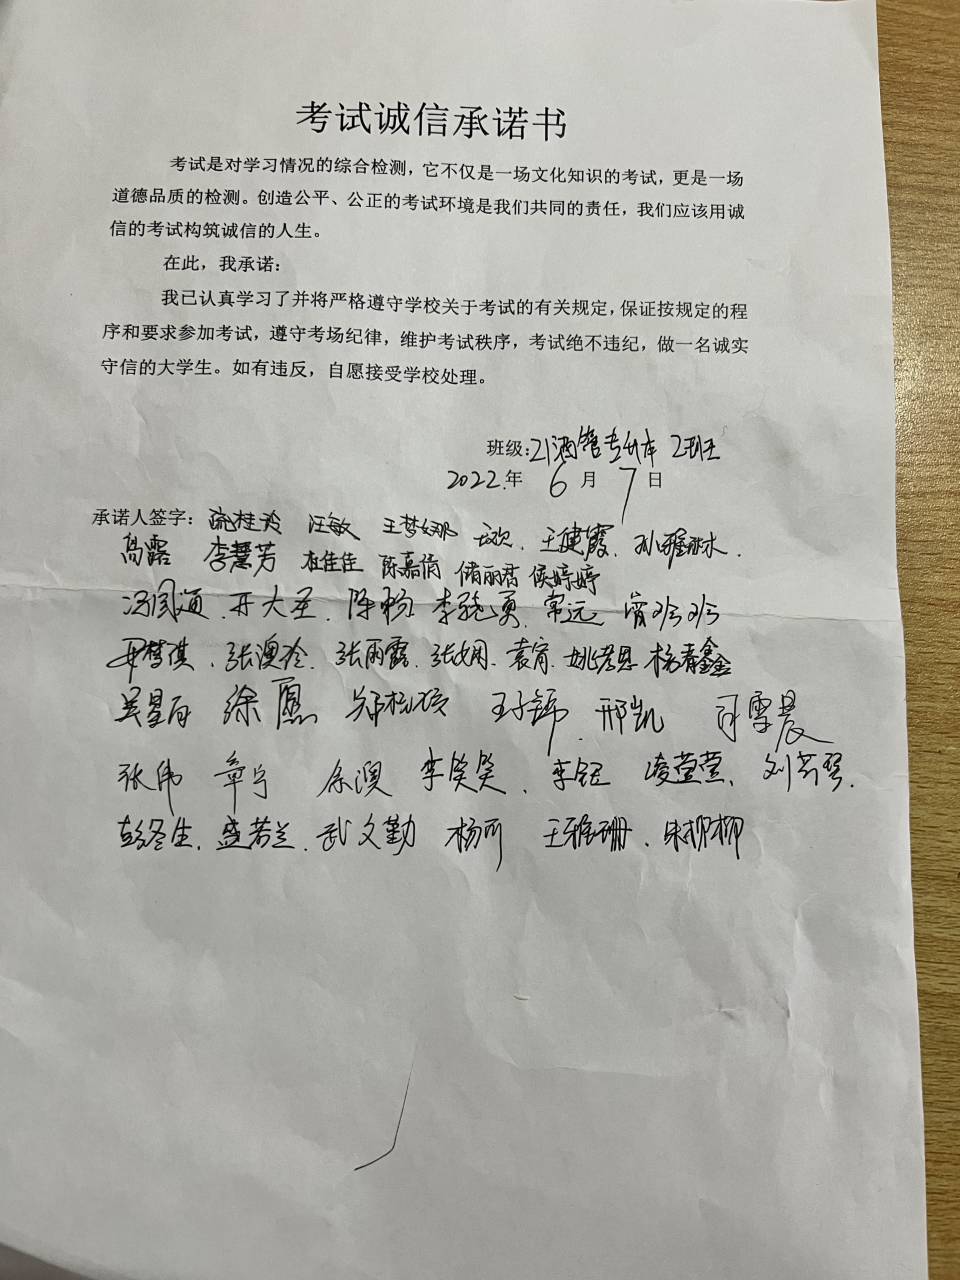 考试诚信承诺书
考试是对学习情况的综合检测，它不仅是一场文化知识的考试，更是一场
道德品质的检测。创造公平、公正的考试环境是我们共同的责任，我们应该用诚
信的考试构筑诚信的人生。
在此，我承诺：
我已认真学习了并将严格遵守学校关于考试的有关规定，保证按规定的程
序和要求参加考试，遵守考场纪律，维护考试秩序，考试绝不违纪，做一名诚实
守信的大学生。如有违反，自愿接受学校处理。
班级：21酒管专升本 2班
2022.年 6 月 7 日
承诺人签字：汪敏 王梦娜 王健霞.
高露 李慧芳 杜佳佳 陈嘉倩 储丽君 侯婷婷
陈畅 常远
张雨露. 袁宵
徐愿 王子锦. 邢凯
张伟 章宁 余澳 李笑笑. 李钰 凌萱萱.
彭冬生. 盛若兰. 武文勤 杨 王雅珊. 朱柳柳